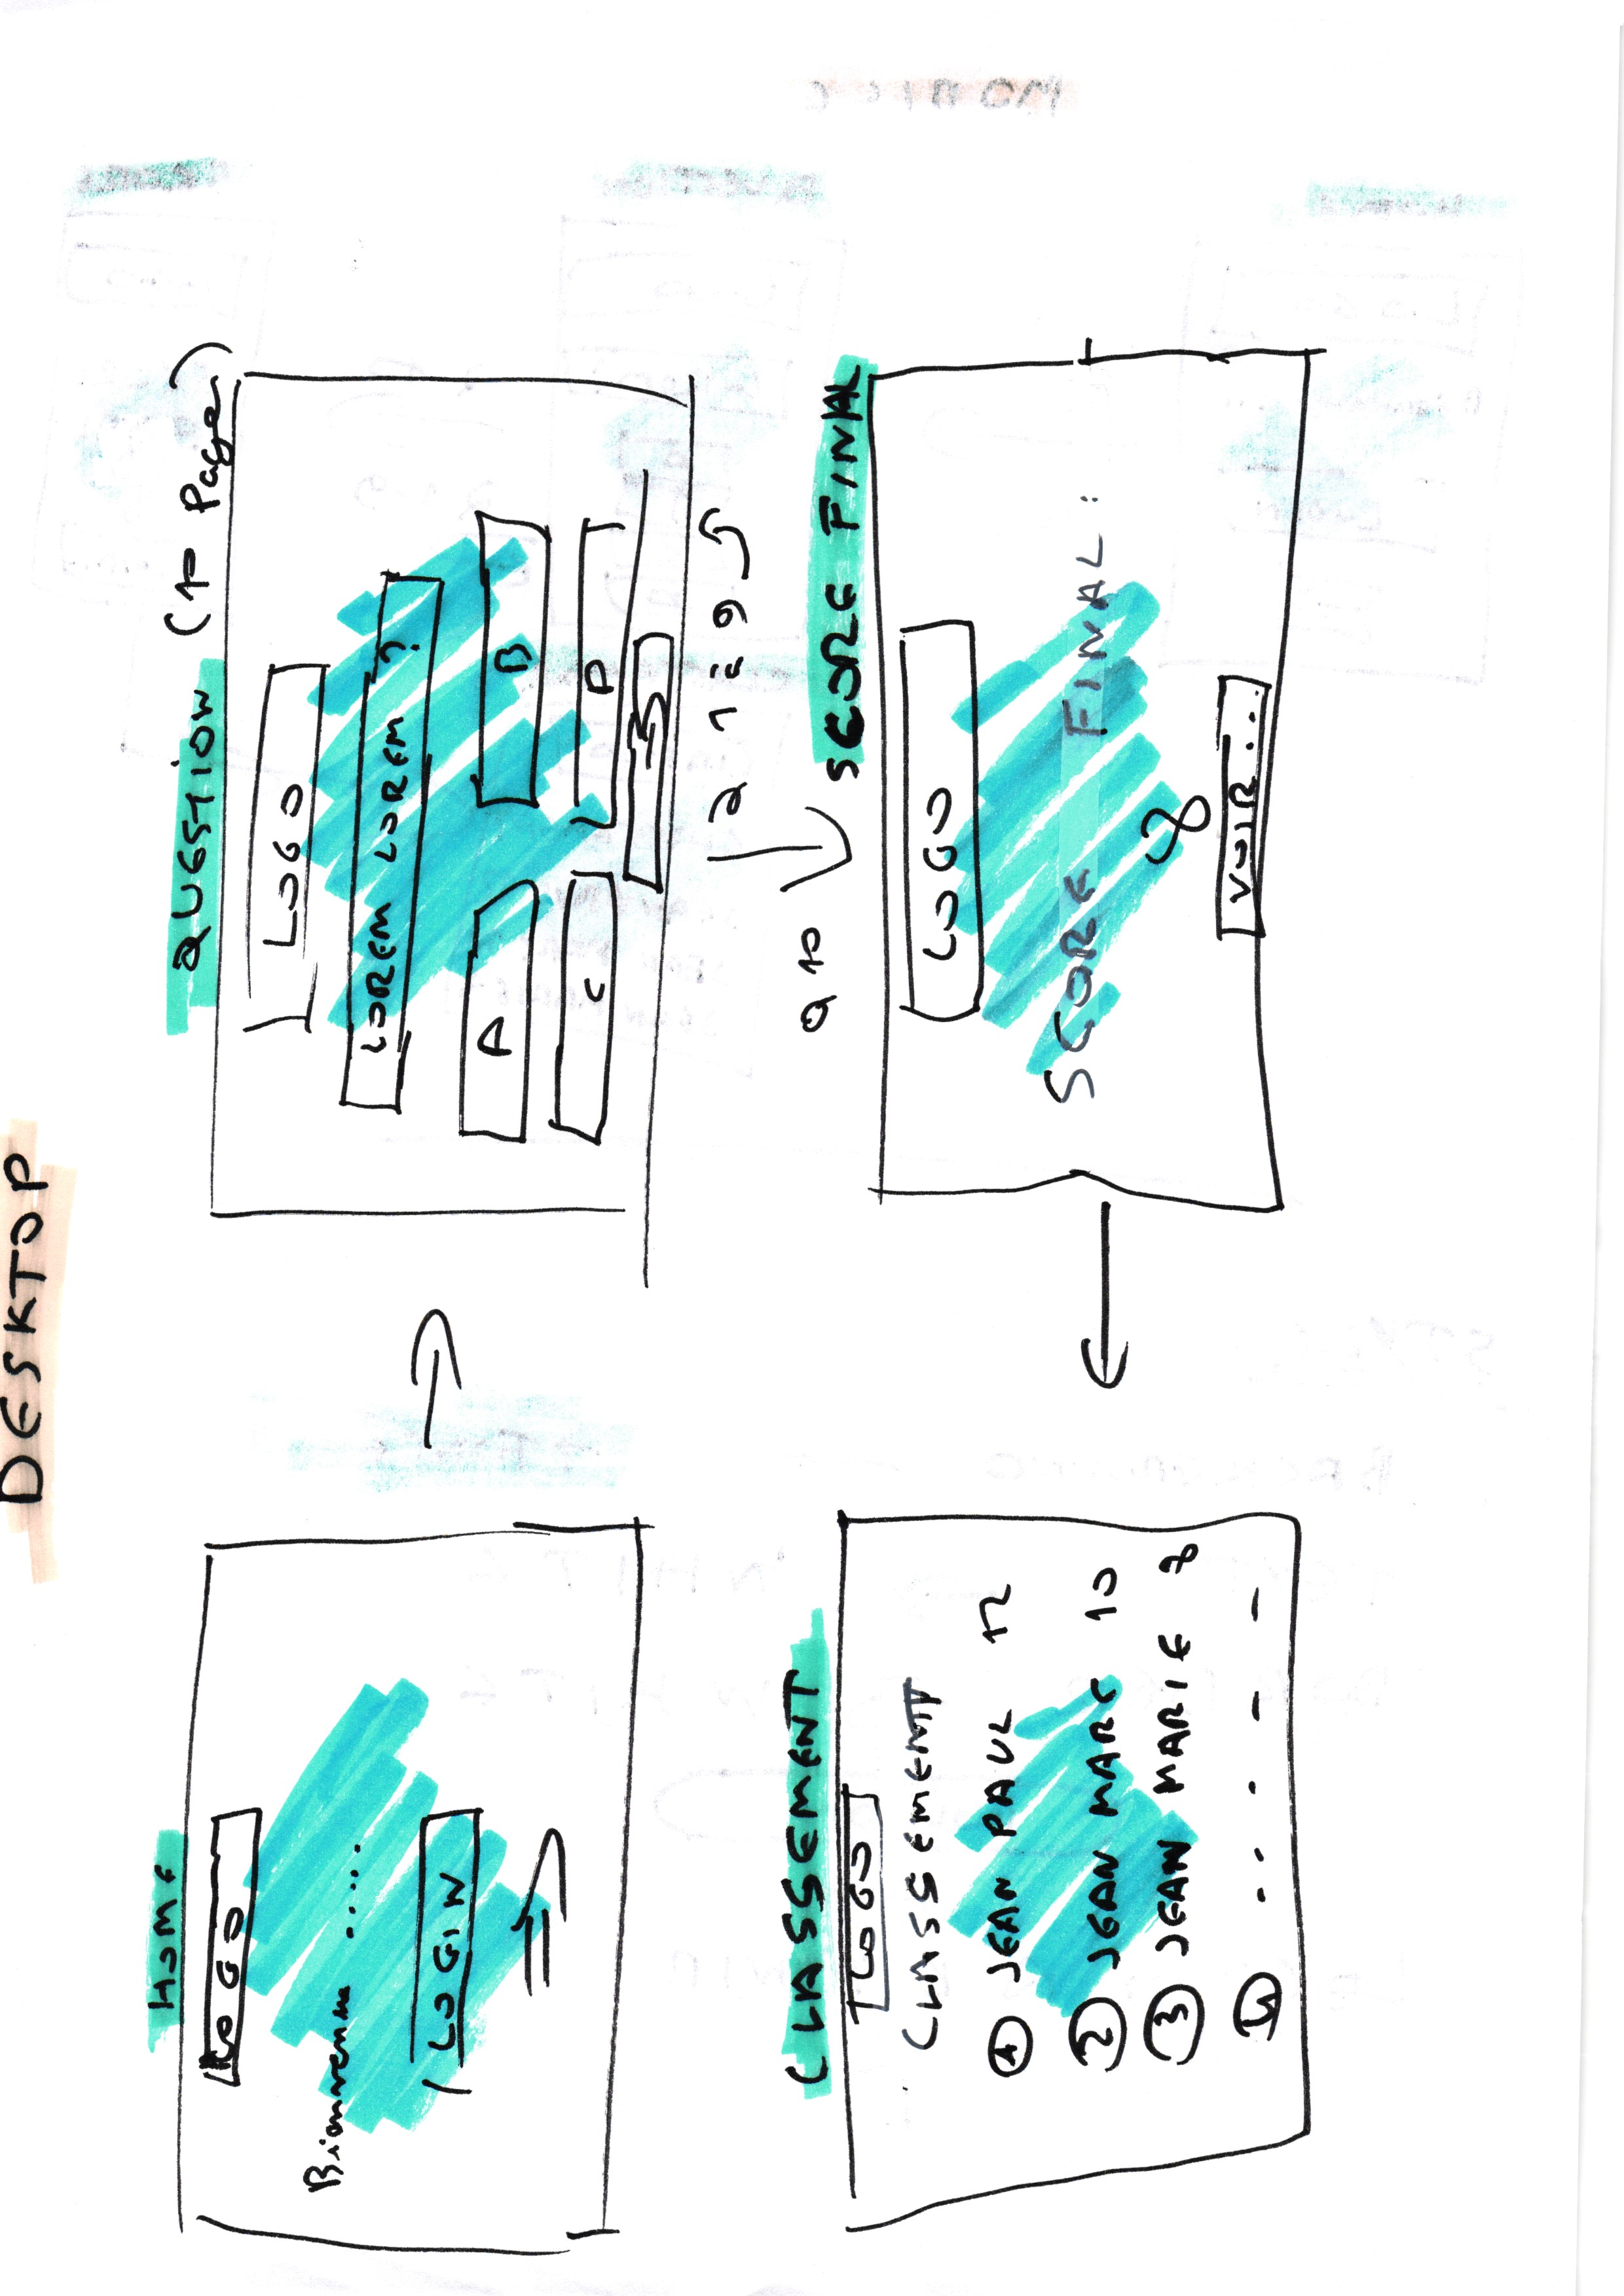 DESKTOP
HOME
LOGO
Bienvenue .....
LOGIN
QUESTION (10 Pages)
LOGO
LOREM LOREM ?
A
B
C
D
Q 1 à 9
Q 10
SCORE FINAL
LOGO
SCORE FINAL :
8
VOIR ...
CLASSEMENT
LOGO
CLASSEMENT
1 JEAN PAUL 12
2 JEAN MARC 10
3 JEAN MARIE 8
4 . . . - -